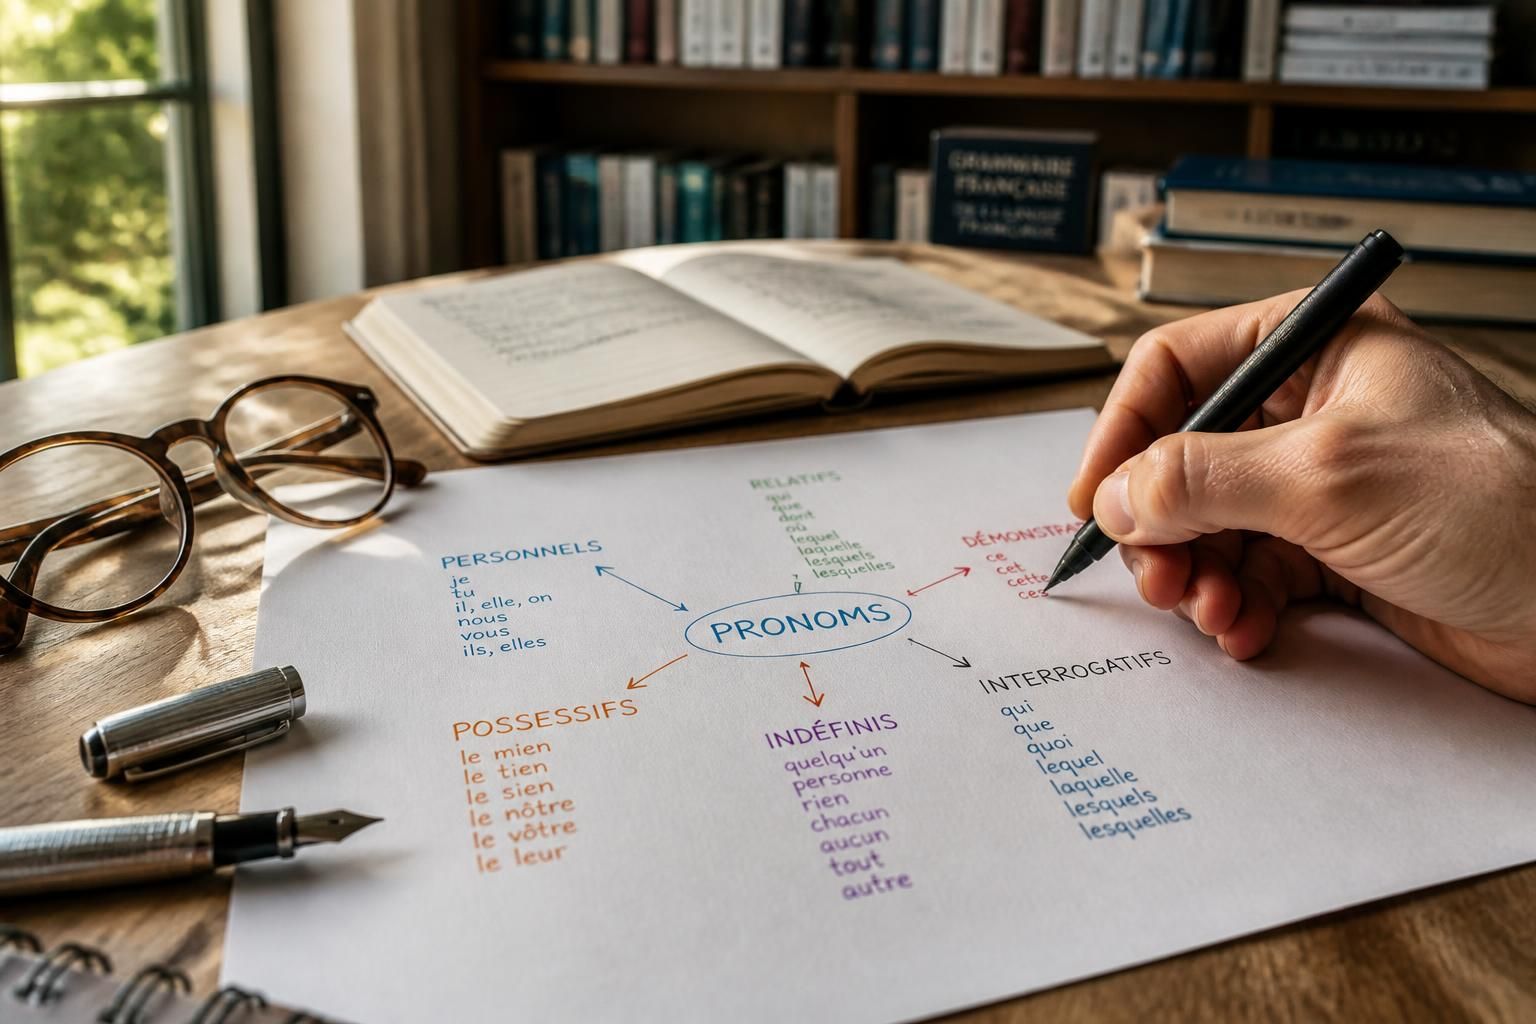 GRAMMAIRE
FRANÇAISE
FRANÇAISE
RELATIFS
qui
que
dont
où
lequel
laquelle
lesquels
lesquelles
PERSONNELS
je
tu
il, elle, on
nous
vous
ils, elles
DÉMONSTRA
ce
cet
cette
ces
PRONOMS
POSSESSIFS
le mien
le tien
le sien
le nôtre
le vôtre
le leur
INDÉFINIS
quelqu'un
personne
rien
chacun
aucun
tout
autre
INTERROGATIFS
qui
que
quoi
lequel
laquelle
lesquels
lesquelles